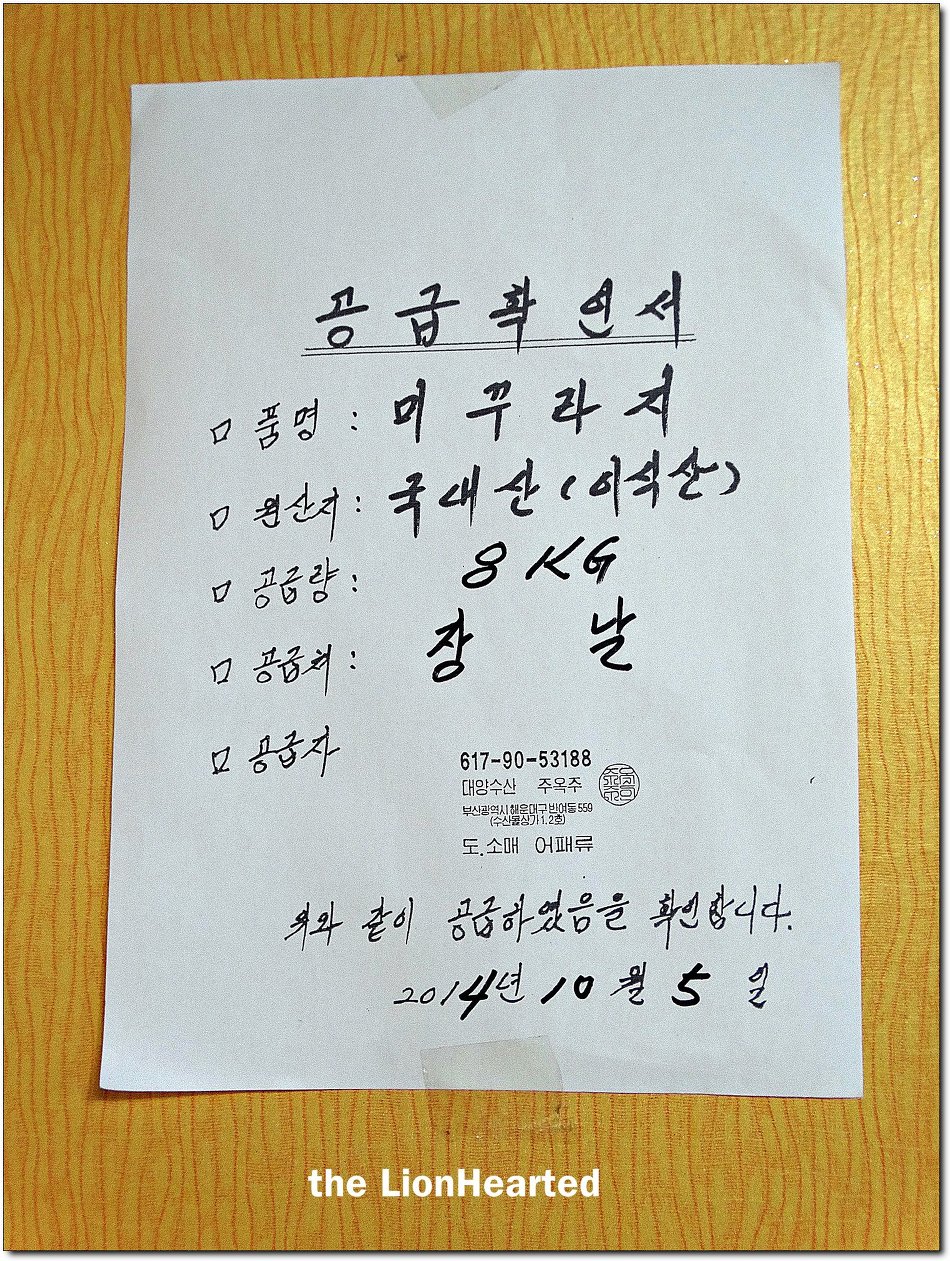 공급확인서
□ 품명 : 미꾸라지
□ 원산지 : 국내산 (이식산)
□ 공급량 : 8KG
□ 공급처 : 장날
□ 공급자
617-90-53188
대양수산 주옥주
부산광역시 해운대구 반여동 559
(수산물상가 1.2호)
도.소매 어패류
위와 같이 공급하였음을 확인합니다.
2014년 10월 5일
the LionHearted